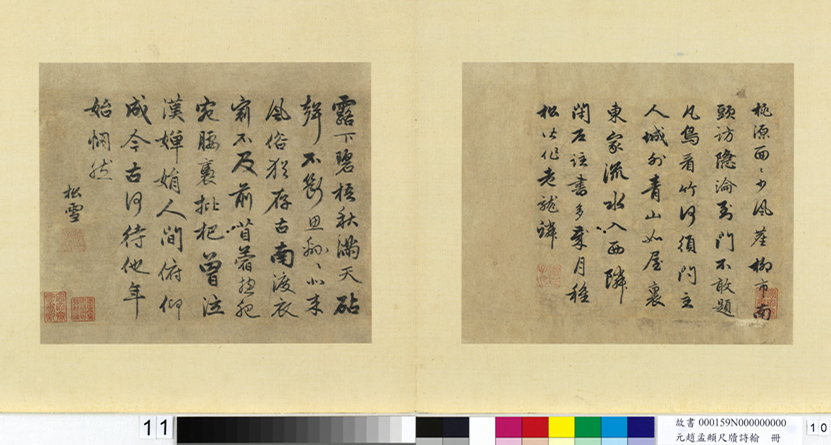 桃源面〻少風塵柳市南
頭訪隱淪至門不敢題
凡鳥看竹何須問主
人城外青山如屋裏
東家流水入西隣
閉户註書多歲月種
松皆作老龍鱗
露下碧梧秋滿天砧
聲不斷思綿〻北来
風俗猶存古南渡衣
冠不及前苜蓿總肥
宛腰褭枇杷曾泣
漢嬋娟人間俯仰
成今古何待他年
始惘然
松雪
11
故書 000159N000000000
元趙孟頫尺牘詩翰 冊
10